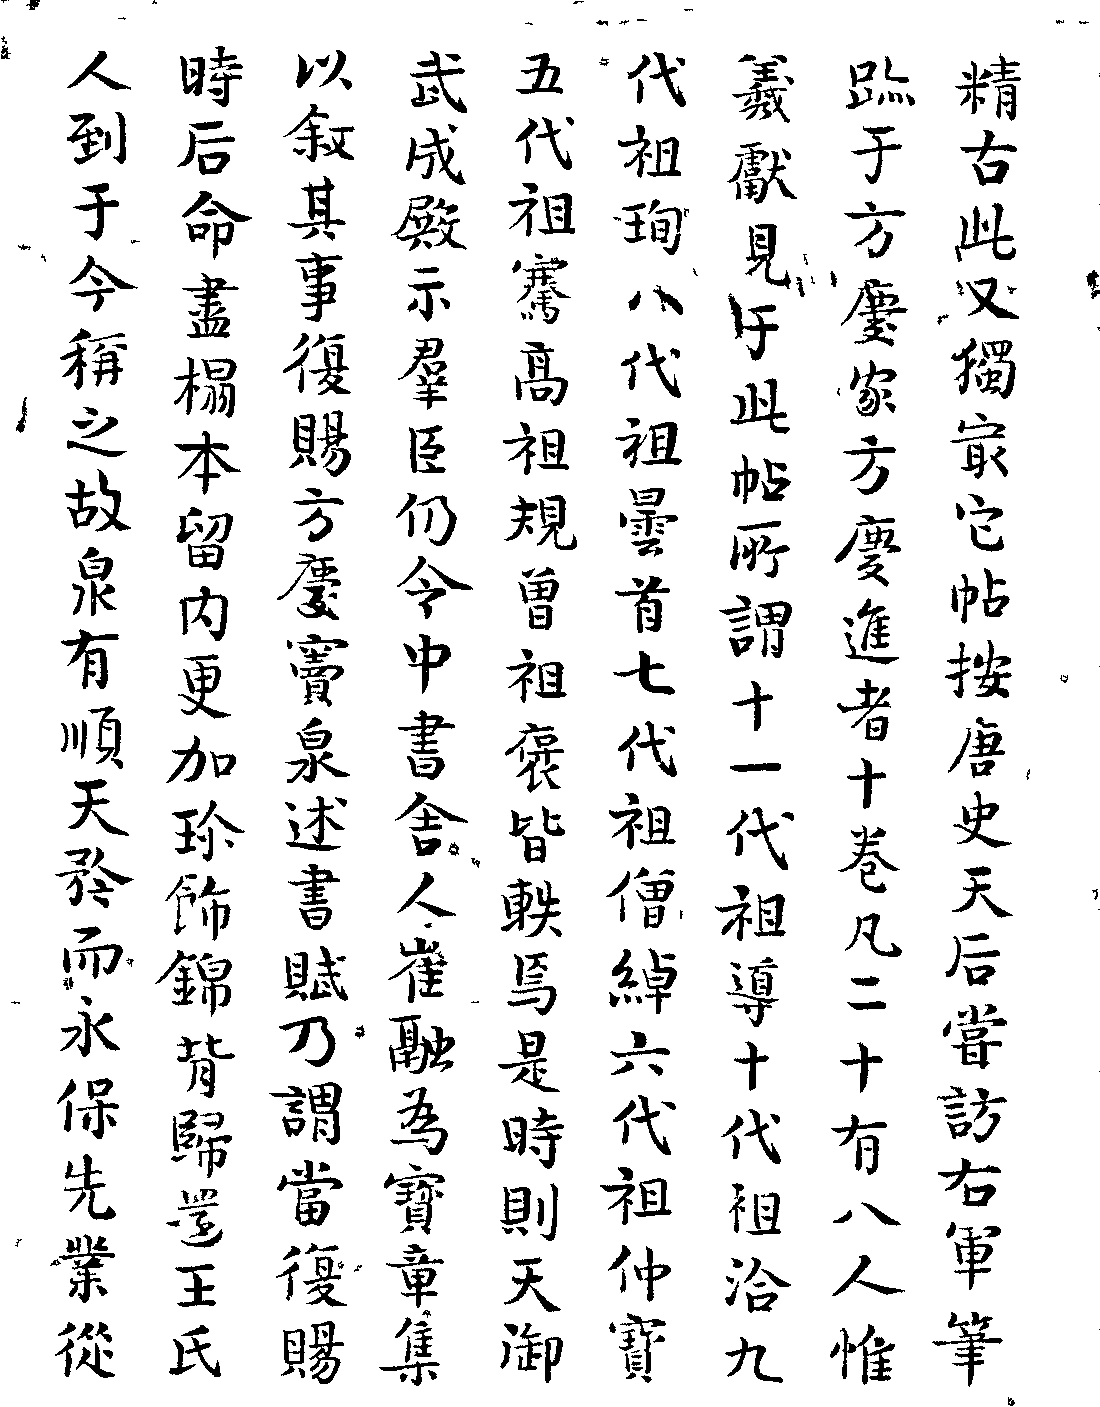 精古此又獨㝡它帖按唐史天后嘗訪右軍筆
跡于方慶家方慶進者十卷凡二十有八人惟
羲獻見于此帖所謂十一代祖導十代祖洽九
代祖珣八代祖曇首七代祖僧綽六代祖仲寶
五代祖騫高祖規曾祖褒皆軼焉是時則天御
武成殿示羣臣仍令中書舍人崔融為寶章集
以敘其事復賜方慶竇臮述書賦乃謂當復賜
時后命盡榻本留内更加珎飾錦背歸還王氏
人到于今稱之故臮有順天矜而永保先業從